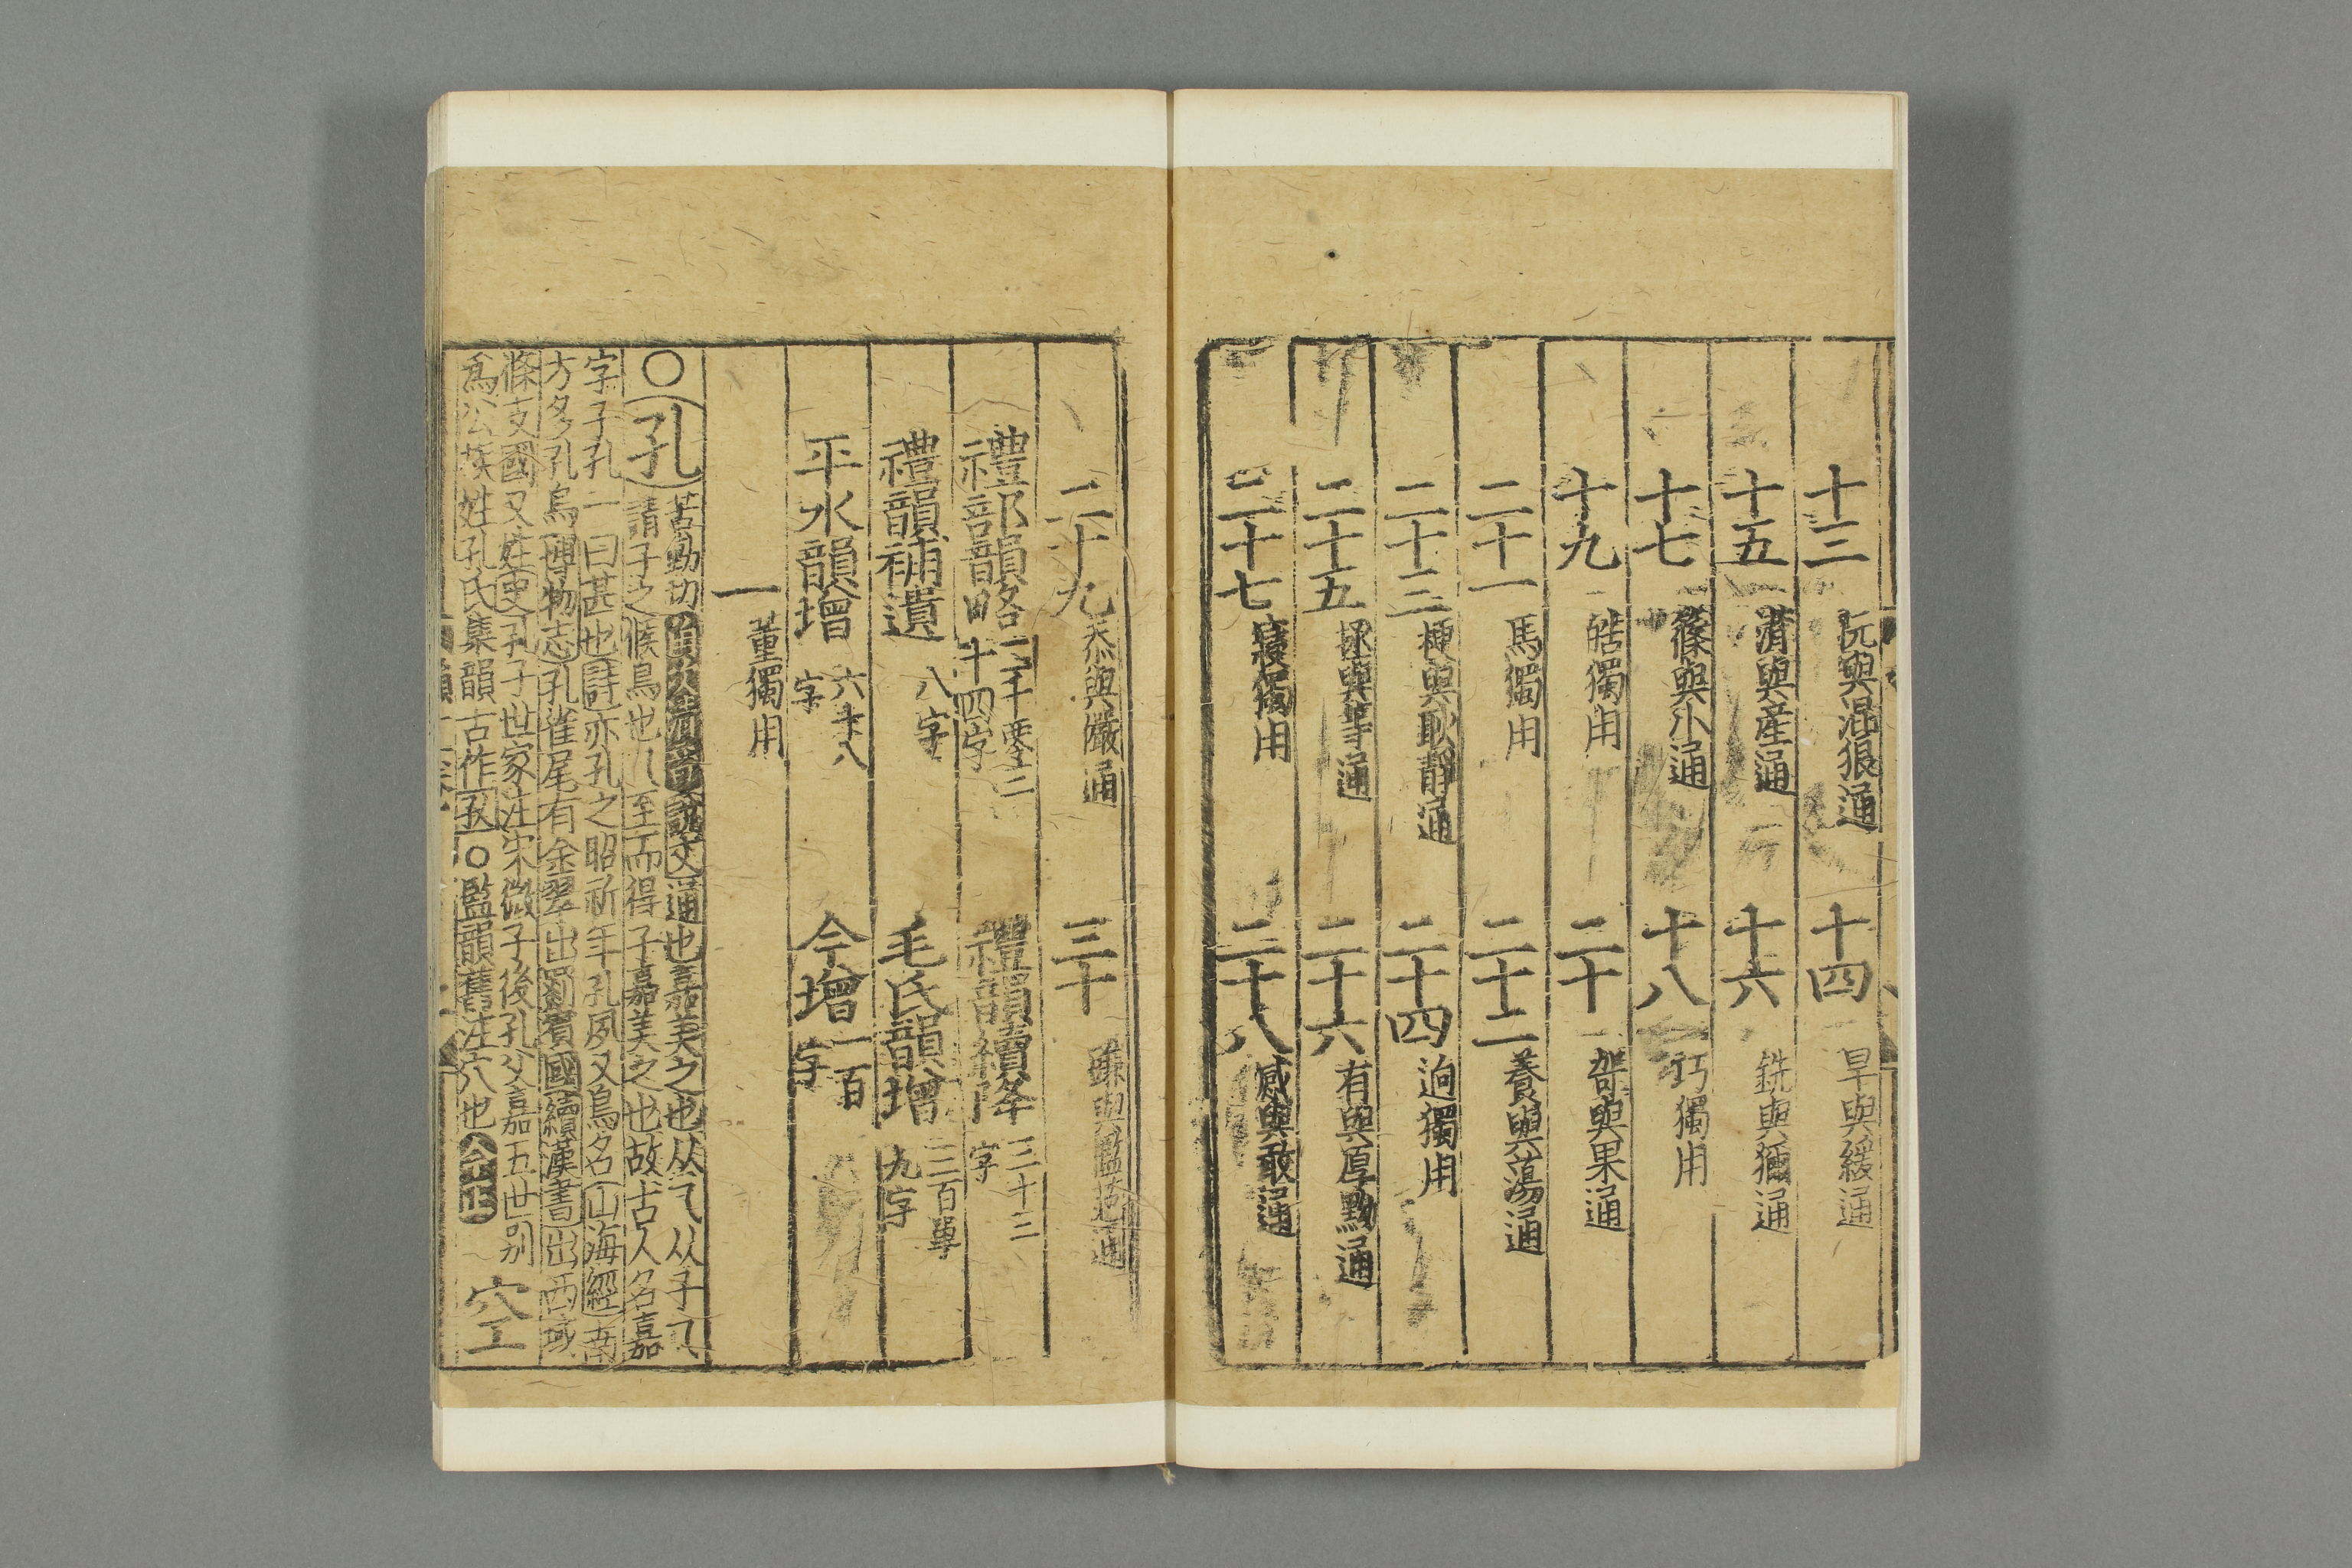 十三 阮與混很通 十四 旱與緩通
十五 潸與産通 十六 銑與獮通
十七 篠與小通 十八 巧獨用
十九 皓獨用 二十 哿與果通
二十一 馬獨用 二十二 養與蕩通
二十三 梗與耿靜通 二十四 迥獨用
二十五 拯與等通 二十六 有與厚黝通
二十七 寑獨用 二十八 感與敢通
二十九 忝與儼通 三十 豏與檻范通
禮部韻略 二千零二十四字 禮韻續降 三十三字
禮韻補遺 八字 毛氏韻增 三百單九字
平水韻增 六十八字 今增 一百字
一 董獨用
○孔 苦動切 角次清音 說文通也嘉美之也从乁从子乁
請子之候鳥也乁至而得子嘉美之也故古人名嘉
字子孔一曰甚也詩亦孔之昭祈年孔夙又鳥名山海經南
方多孔鳥博物志孔雀尾有金翠出罽賓國續漢書出西域
條支國又姓史孔子世家注宋微子後孔父嘉五世別
爲公族姓孔氏集韻古作㺲○監韻舊注穴也今正 空